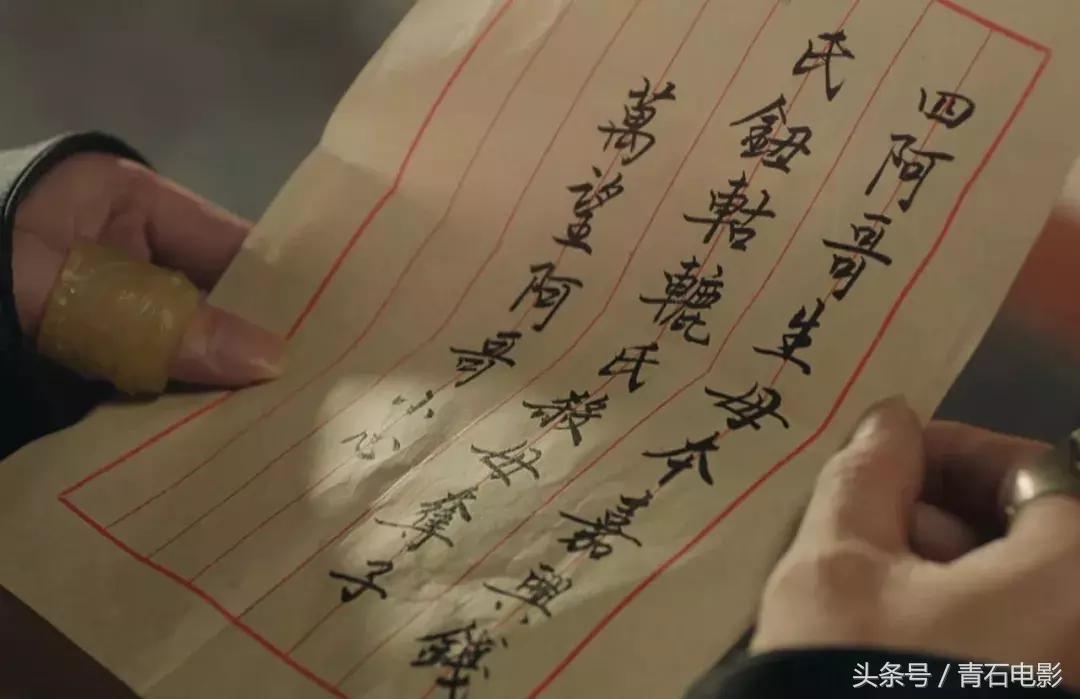 四阿哥生母本嘉興錢
氏鈕軲轆氏殺母奪子
萬望阿哥小心
头条号 / 青石电影